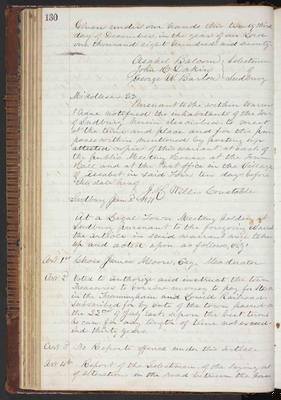 130
Given under our hands this twenty third
day of December, in the year of our Lord
one thousand eight hundred and seventy.
Asahel Balcom, Selectmen
John H. Dakin
George A. Barton Sudbury
Middlesex SS.
Pursuant to the within Warrant
I have notified the inhabitants of the Town
of Sudbury herein described to meet
at the time and place and for the pur
poses within mentioned by posting up
attested copies of this warrant at each of
the public Meeting Houses at the Town
Hall and at the Post office in the Village
of in said Town ten days before
the date
J. P. Willis Constable
Sudbury Jan 2 1871
At a Legal Town Meeting holden at
Sudbury pursuant to the foregoing warrant
the articles in said warrant were taken
up and acted upon as follows, viz:
Art. 1st Chose James Moore, Esq. Moderator
Art. 2 Voted to authorize and instruct the town
Treasurer to borrow money to pay for stock
in the Framingham and Lowell Railroad
subscribed for by vote of the town passed on
the 22nd of July last, upon the best terms
he can for any length of time not exceed-
ing thirty years.
Art. 3rd No Report offered under this article
Art. 4th Report of the Selectmen of the laying out
of alteration in the road between the house